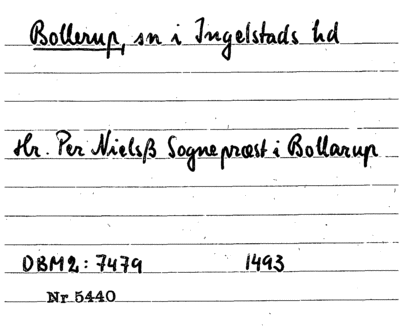 Bollerup, sn i Ingelstads hd
Hr. Per Nielsß Sognepræst i Bollarup
DBM2: 7479 1493
Nr 5440